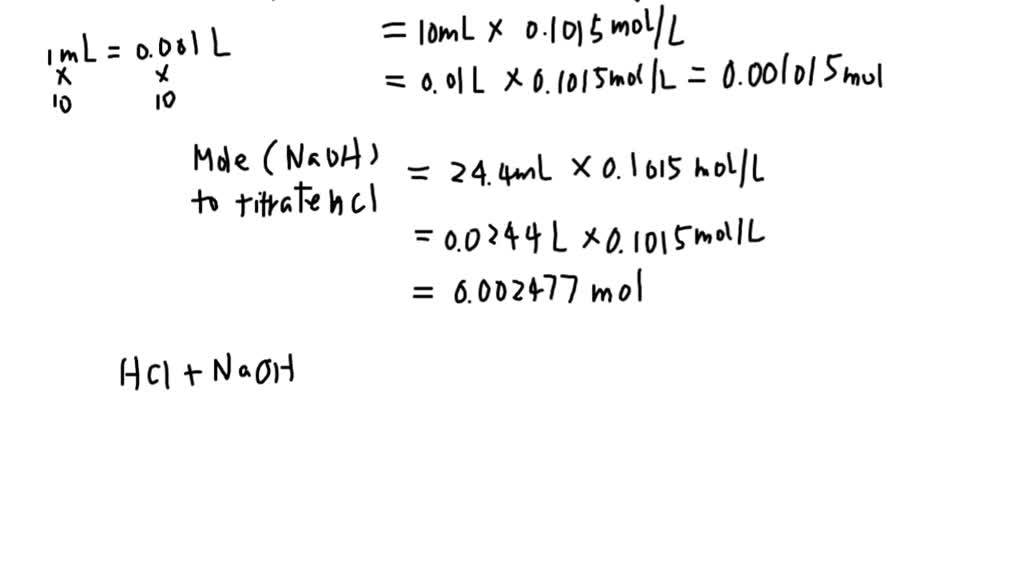 = 10mL × 0.1015 mol/L
1mL = 0.001 L
× ×
10 10
= 0.01L × 0.1015 mol/L = 0.001015 mol
Mole (NaOH) = 24.4mL × 0.1015 mol/L
to titrate hcl
= 0.0244 L × 0.1015 mol/L
= 0.002477 mol
HCl + NaOH